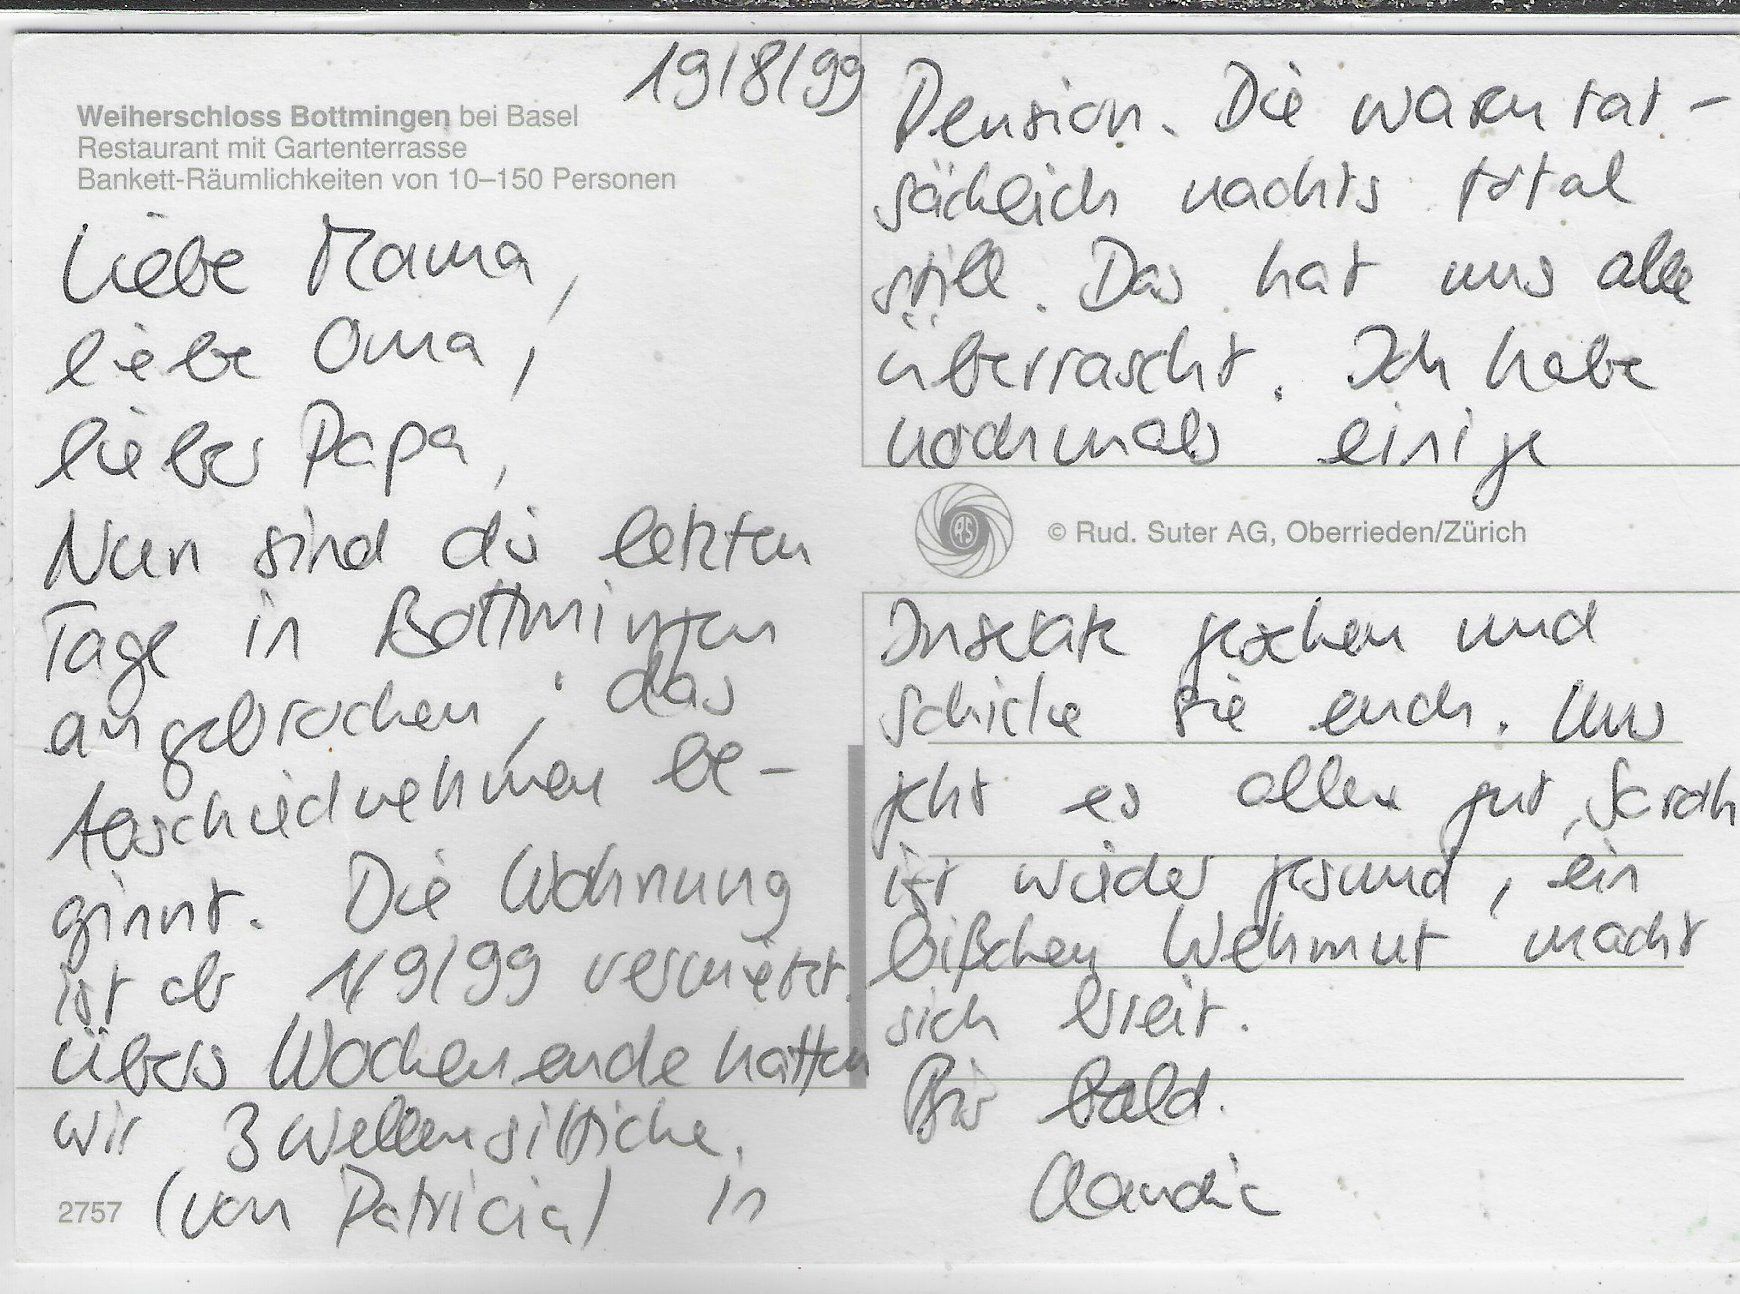 19/8/99
Weiherschloss Bottmingen bei Basel
Restaurant mit Gartenterrasse
Bankett-Räumlichkeiten von 10–150 Personen
Liebe Mama,
liebe Oma,
lieber Papa,
Nun sind die letzten
Tage in Bottmingen
angebrochen; das
Abschiednehmen be-
ginnt. Die Wohnung
ist ab 1/9/99 vermietet.
Übers Wochenende hatten
wir 3 Wellensittiche,
(von Patricia) in
2757
Pension. Die waren tat-
sächlich nachts total
still. Das hat uns alle
überrascht. Ich habe
nochmals einige
© Rud. Suter AG, Oberrieden/Zürich
Inserate gesehen und
schicke sie euch. Uns
geht es allen gut, Sarah
ist wieder gesund, ein
bißchen Wehmut macht
sich breit.
Bis bald.
Claudia